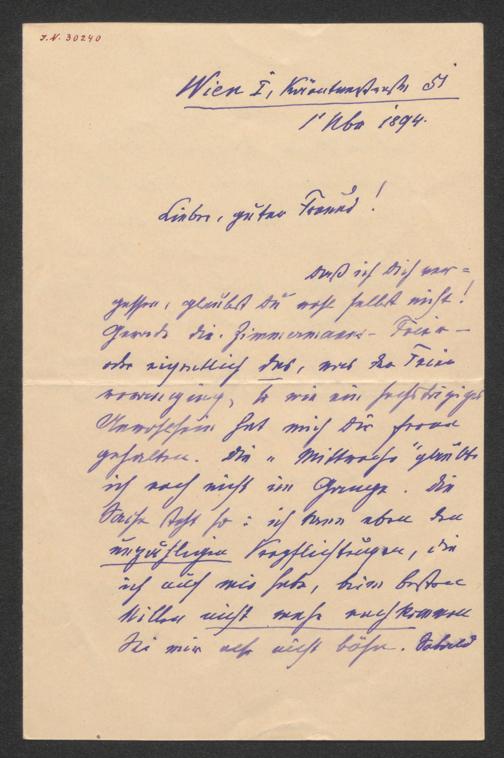 J.N. 30240
Wien I, Kärntnerstraße 51
1 Nov 1894.
Lieber, guter Freund!
Daß ich Dich ver=
gessen, glaubst Du wohl selbst nicht!
Gerade die Zimmermann-Feier —
oder eigentlich das, was der Feier
voranging, so wie ein
Unwohlsein hat mich Dir fern
gehalten. Die „Mittwoche" glaubte
ich noch nicht im Gange. Die
Sache steht so: ich kann eben den
unzähligen Verpflichtungen, die
ich auf mir habe, beim besten
Willen nicht mehr nachkommen
Sei mir also nicht böse. Sobald